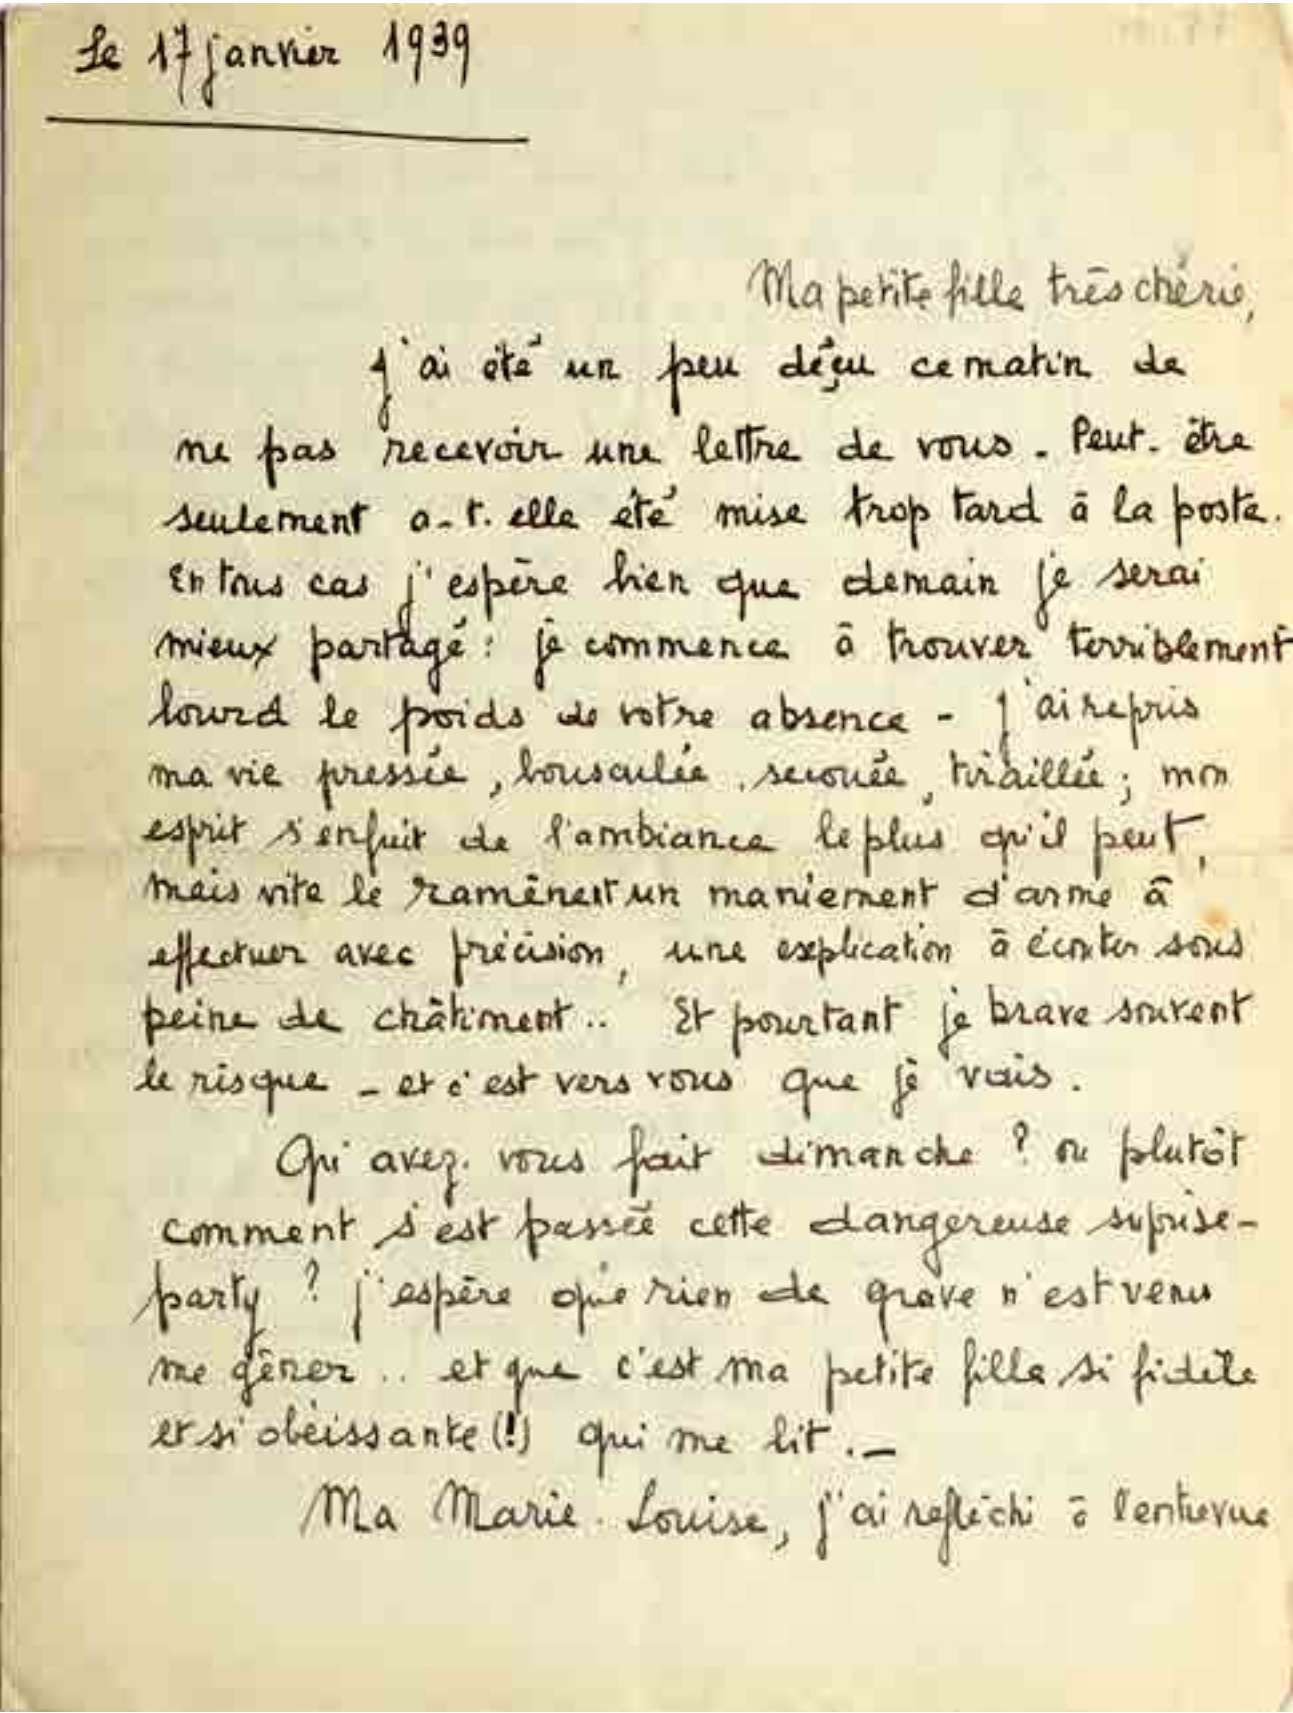 Le 17 janvier 1939
Ma petite fille très chérie,
J'ai été un peu déçu ce matin de
ne pas recevoir une lettre de vous. Peut-être
seulement a-t-elle été mise trop tard à la poste.
En tous cas j'espère bien que demain je serai
mieux partagé : je commence à trouver terriblement
lourd le poids de votre absence - J'ai repris
ma vie pressée, bousculée, secouée, tiraillée; mon
esprit s'enfuit de l'ambiance le plus qu'il peut,
mais vite le ramènent un maniement d'arme à
effectuer avec précision, une explication à écouter sous
peine de châtiment.. Et pourtant je brave souvent
le risque - et c'est vers vous que je vais.
Qu'avez-vous fait dimanche ? ou plutôt
comment s'est passée cette dangereuse suprise-
party ? j'espère que rien de grave n'est venu
me gêner .. et que c'est ma petite fille si fidèle
et si obéissante (!) qui me lit. -
Ma Marie-Louise, j'ai réfléchi à l'entrevue